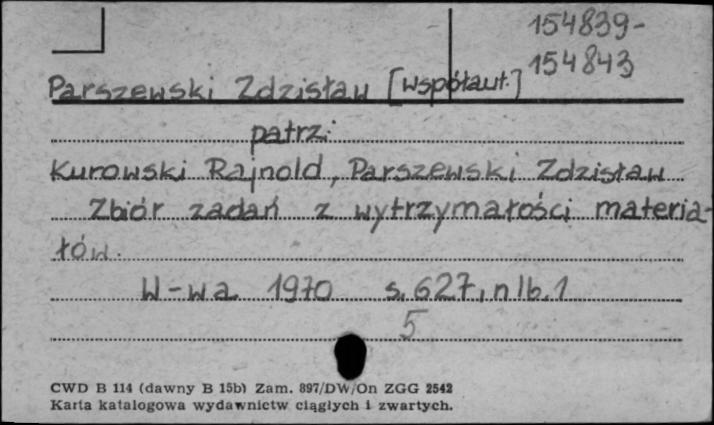 154839-
154843
Parszewski Zdzisław [współaut.]
patrz:
Kurowski Rajnold, Parszewski Zdzisław
Zbiór zadań z wytrzymałości materia-
łów.
W-wa 1970 s. 627, nlb. 1
5
CWD B 114 (dawny B 15b) Zam. 897/DW/On ZGG 2542
Karta katalogowa wydawnictw ciągłych i zwartych.